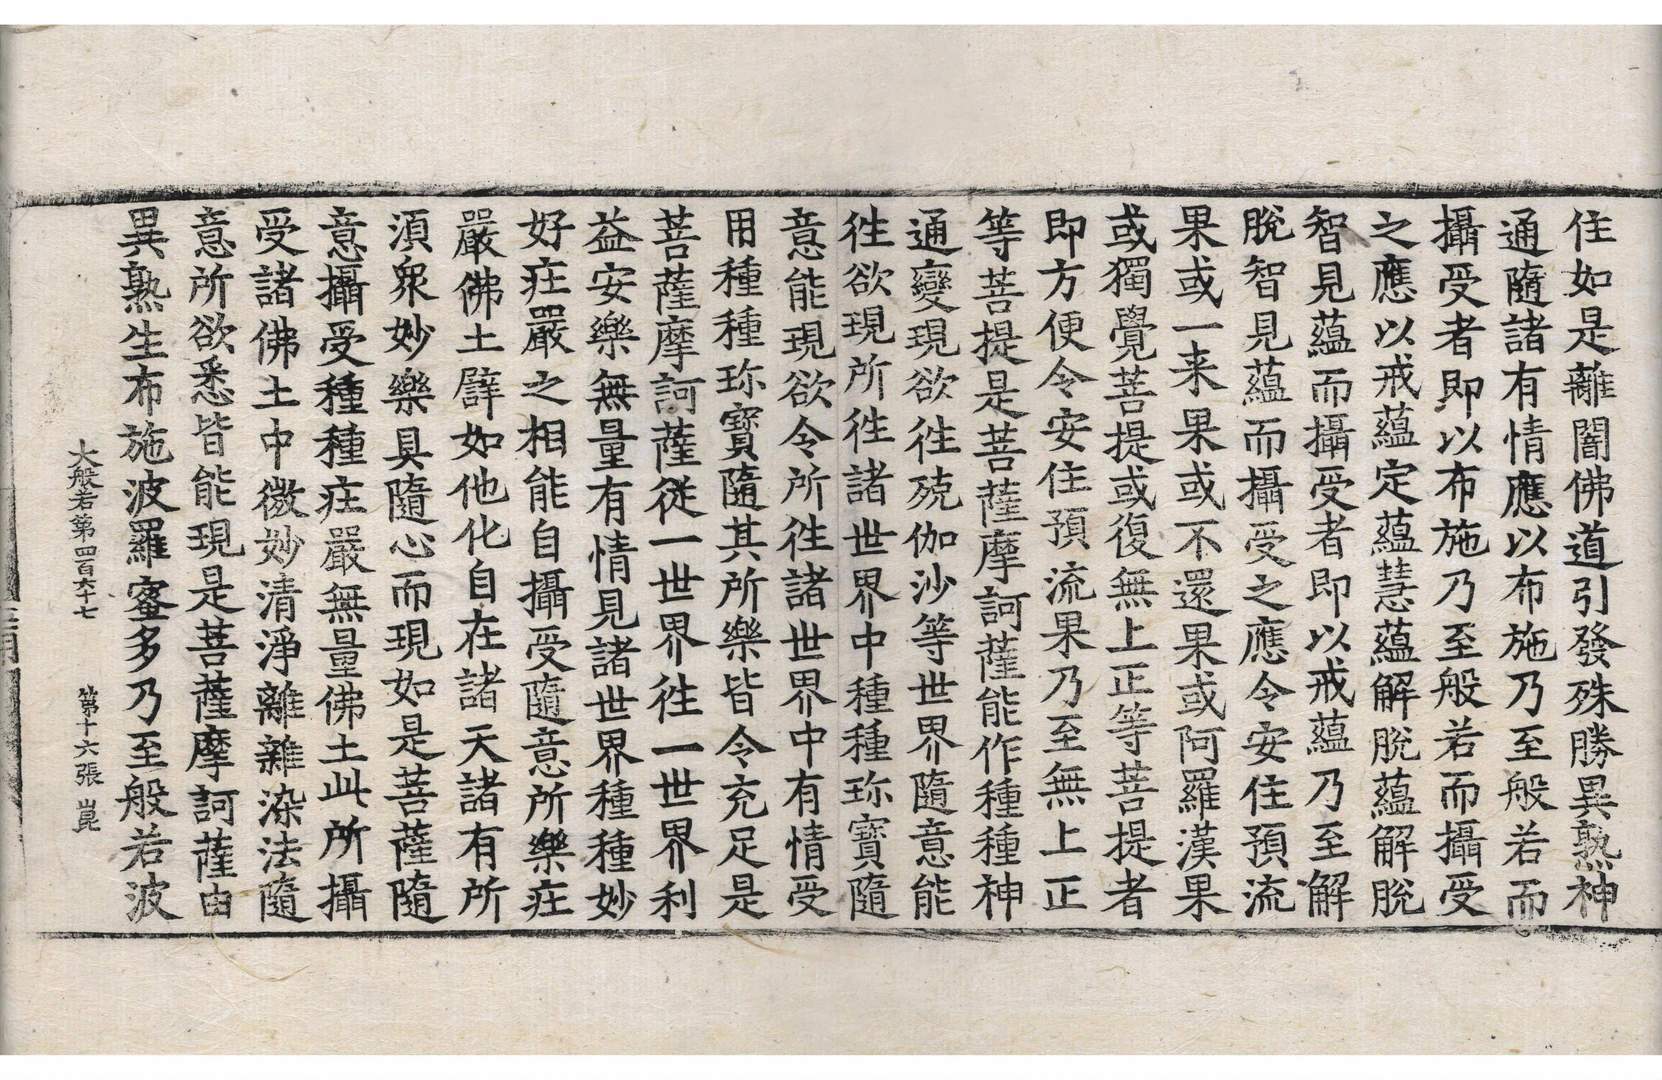 住如是離闇佛道引發殊勝異熟神
通隨諸有情應以布施乃至般若而
攝受者即以布施乃至般若而攝受
之應以戒蘊定蘊慧蘊解脫蘊解脫
智見蘊而攝受者即以戒蘊乃至解
脫智見蘊而攝受之應令安住預流
果或一来果或不還果或阿羅漢果
或獨覺菩提或復無上正等菩提者
即方便令安住預流果乃至無上正
等菩提是菩薩摩訶薩能作種種神
通變現欲往殑伽沙等世界隨意能
往欲現所往諸世界中種種珎寶隨
意能現欲令所往諸世界中有情受
用種種珎寶隨其所樂皆令充足是
菩薩摩訶薩從一世界往一世界利
益安樂無量有情見諸世界種種妙
好庄嚴之相能自攝受隨意所樂庄
嚴佛土譬如他化自在諸天諸有所
湏衆妙樂具隨心而現如是菩薩隨
意攝受種種庄嚴無量佛土此所攝
受諸佛土中微妙清淨離雜染法隨
意所欲悉皆能現是菩薩摩訶薩由
異熟生布施波羅蜜多乃至般若波
大般若第四百六十七　第十六張　崑